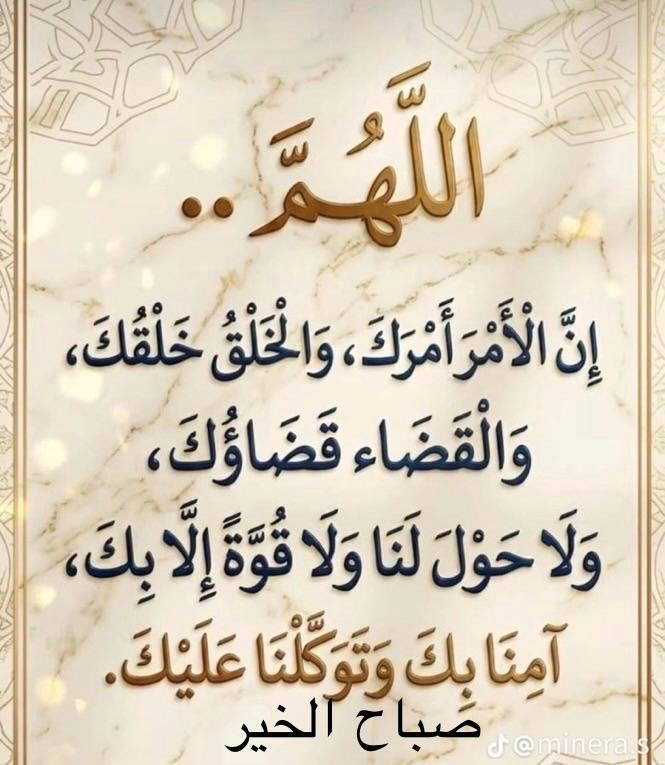 اللَّهُمَّ ..
إِنَّ الْأَمْرَ أَمْرَكَ، وَالْخَلْقُ خَلْقُكَ،
وَالْقَضَاء قَضَاؤُكَ،
وَلَا حَوْلَ لَنَا وَلَا قُوَّةً إِلَّا بِكَ،
آمِنَا بِكَ وَتَوَكَّلْنَا عَلَيْكَ.
صباح الخير
@minera.s